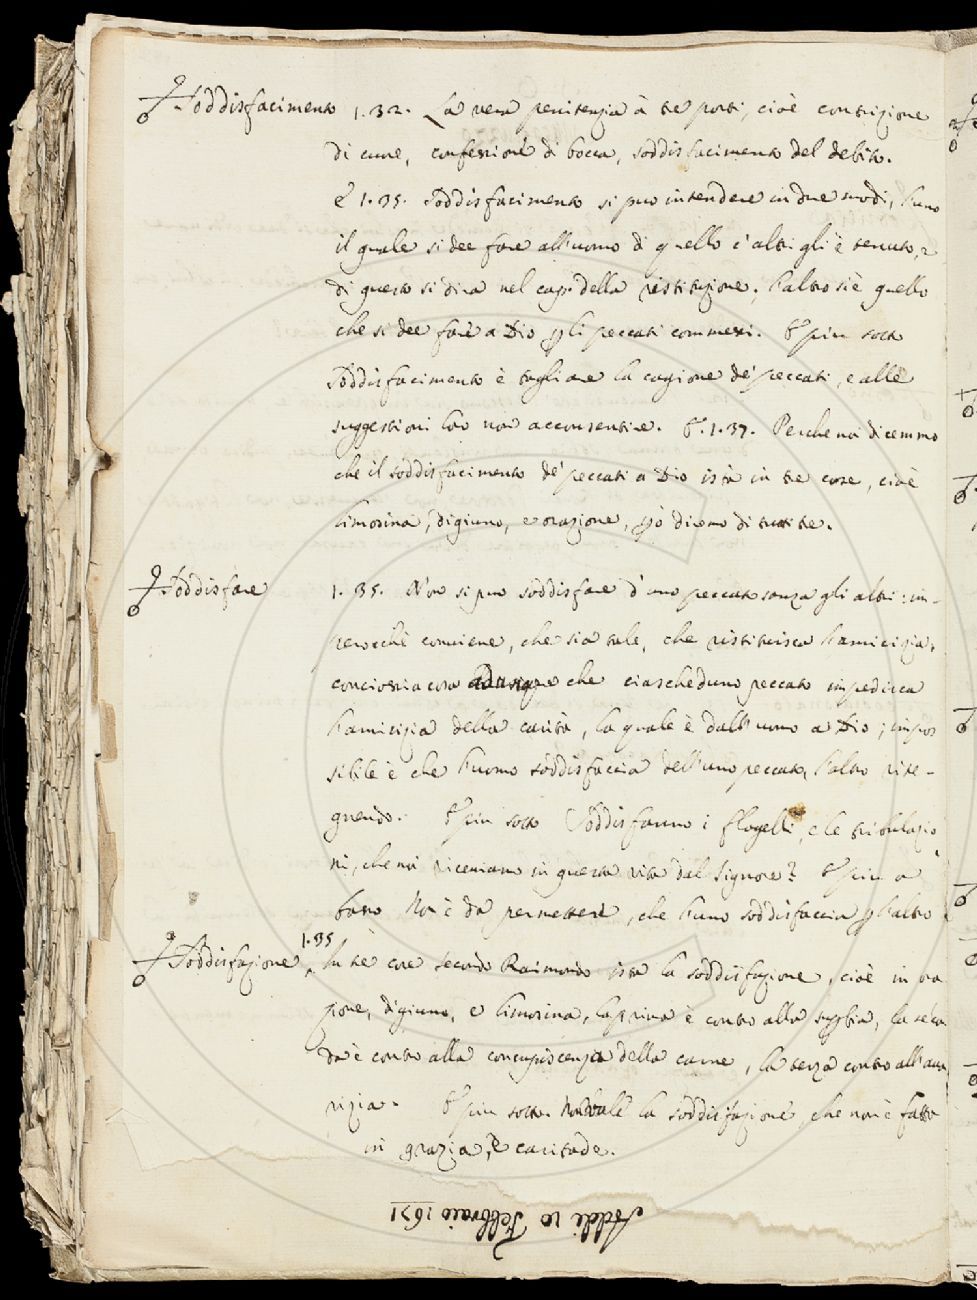 Soddisfacimento 1.32. La vera penitenzia à tre parti, cioè contrizione
di cuore, confessione di bocca, soddisfacimento del debito.
E 1.35. Soddisfacimento si puo intendere in due modi, l'uno
il quale si dee fare all'uomo di quello c'altri gli è tenuto, e
di questo si dira nel cap. della restituzione; l'altro si è quello
che si dee fare a Dio p li peccati commessi. E piu sotto
Soddisfacimento è tagliare la cagione de' peccati, e alle
suggestioni loro non acconsentire. E 1.37. Perche noi dicemmo
che il soddisfacimento de' peccati a Dio ista in tre cose, cioè
limosina, digiuno, e orazione, però diremo di tutte tre.
Soddisfare 1.35. Non si puo soddisfare d'uno peccato sanza gli altri: im-
perocchè conviene, che sia tale, che ristituisca l'amicizia.
conciossia cosa che ciascheduno peccato impedisca
l'amicizia della carità, la quale è dall'uomo a Dio; impos
sibile è che l'uomo soddisfaccia dell'uno peccato, l'altro rite-
gnendo. E piu sotto Soddisfanno i flagelli, e le tribulazio
ni, che noi riceviamo in questa vita dal Signore? E piu a
basso Non è da permettere, che l'uno soddisfaccia p l'altro
Soddisfazione 1.35 In tre cose secondo Raimondo ista la soddisfazione, cioè in ora
zione, digiuno, e limosina, la prima è contro alla supbia, la secon
da è contro alla concupiscenzia della carne, la terza contro all'ava
rizia. E piu sotto. Non vale la soddisfazione, che non è fatta
in grazia, e caritade.
Addi 10 Febbraio 1671